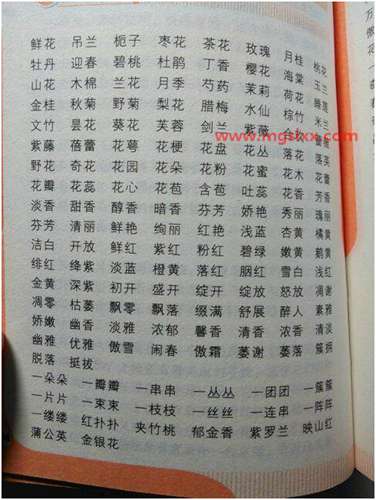 鲜花 吊兰 栀子 枣花 茶花 玫瑰 月桂 桃花
牡丹 迎春 碧桃 杜鹃 丁香 樱花 海棠 玉兰
山花 木棉 兰花 月季 芍药 茉莉 荷花 睡莲
金桂 秋菊 野菊 梨花 腊梅 水仙 棕竹 米兰
文竹 昙花 葵花 芙蓉 剑兰
紫藤 蓓蕾 花萼 花梗 花盘 花丛 落花 落英
野花 奇花 花园 花朵 花粉 花蜜 花木 花香
花瓣 花蕊 花心 花苞 含苞 吐蕊 花香 芳香
淡香 甜香 醇香 暗香 芬芳 娇艳 秀丽 瑰丽
芳芳 清丽 鲜艳 绚丽 红艳 浅蓝 杏黄 橘黄
洁白 开放 鲜红 紫红 粉红 碧绿 嫩黄 鹅黄
绯红 绛紫 淡蓝 橙黄 落红 胭红 雪白 浅红
金黄 深紫 初开 盛开 绽开 绽放 怒放 凋谢
凋零 枯萎 飘零 飘落 缀满 舒展 醉人 素雅
娇嫩 幽香 淡雅 浓郁 馨香 清香 浓香 清淡
幽雅 优雅 傲雪 闹春 傲霜 萎谢 萎落 簇拥
脱落 挺拔
一朵朵 一瓣瓣 一串串 一丛丛 一团团 一簇簇
一片片 一束束 一枝枝 一丝丝 一连串 一阵阵
一缕缕 红扑扑 夹竹桃 郁金香 紫罗兰 映山红
蒲公英 金银花
www.mgslxx.com